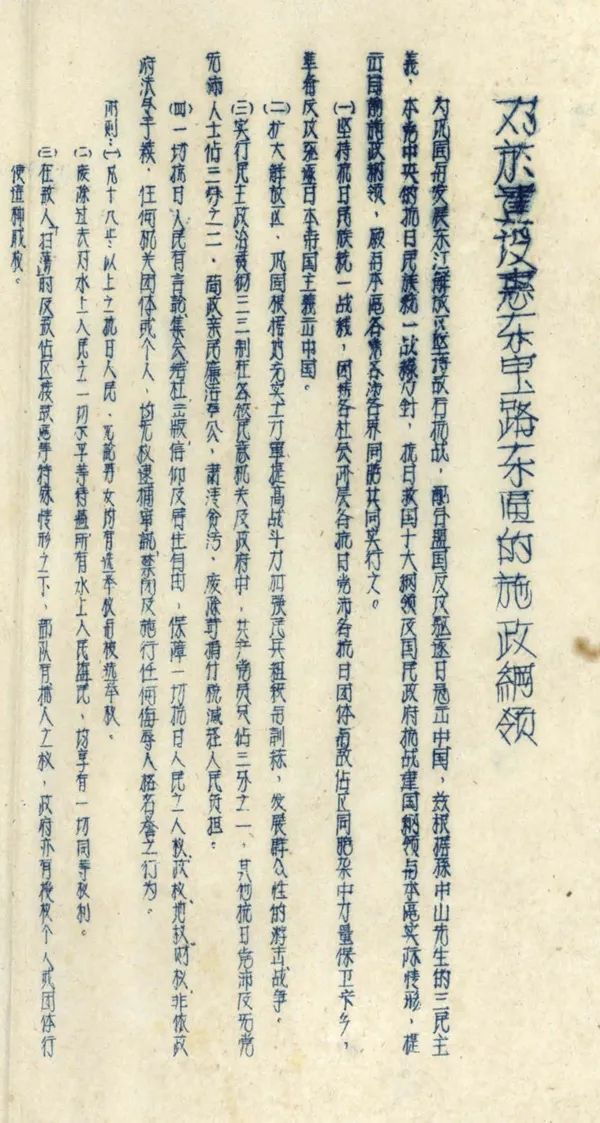 对于建设惠东宝路东区的施政纲领
为巩固与发展东江解放区坚持敌后抗战，配合盟国反攻驱逐日寇出中国，兹根据孙中山先生的三民主
义，本党中央的抗日民族统一战线方针，抗日救国十大纲领及国民政府抗战建国纲领与本区实际情形，提
出目前施政纲领，愿与本区各党各派各界同胞共同实行之。
㈠坚持抗日民族统一战线，团结各社会阶层各抗日党派各抗日团体与敌占区同胞集中力量保卫家乡，
准备反攻驱逐日本帝国主义出中国。
㈡扩大解放区、巩固根据地充实主力军提高战斗力加强民兵组织与训练，发展群众性的游击战争。
㈢实行民主政治贯彻三三制在各级民意机关及政府中，共产党员只占三分之一，其他抗日党派及无党
无派人士占三分之二，简政亲民廉洁奉公，肃清贪污，废除苛捐什税减轻人民负担。
㈣一切抗日人民有言论集会结社出版信仰及居住自由，保障一切抗日人民之人权政权地权财权，非依政
府法令手续，任何机关团体或个人，均无权逮捕审讯禁闭及施行任何侮辱人格名誉之行为。
附则：㈠凡十八岁以上之抗日人民，无论男女均有选举权与被选举权。
㈡废除过去对水上人民之一切不平等待遇所有水上人民渔民，均享有一切同等权利。
㈢在敌人“扫荡”时及敌占区接敌区等特殊情形之下，部队有捕人之权，政府亦有授权个人或团体行
使这种职权。